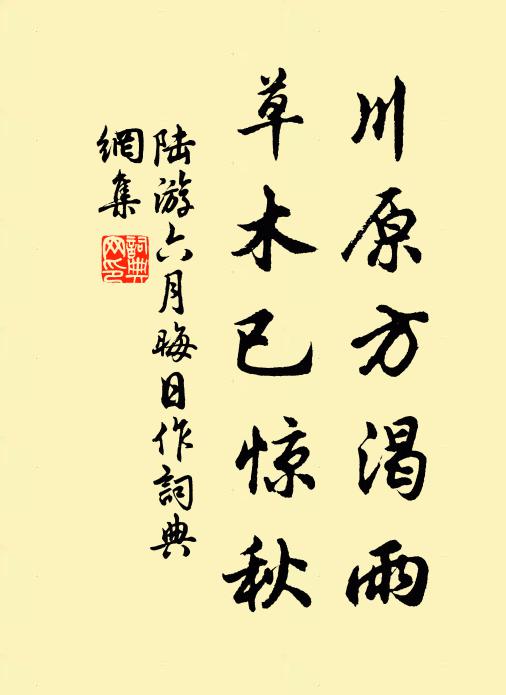 川原方渴雨
草木已惊秋
陆游六月晦日作詞典
網集
詞典
网印